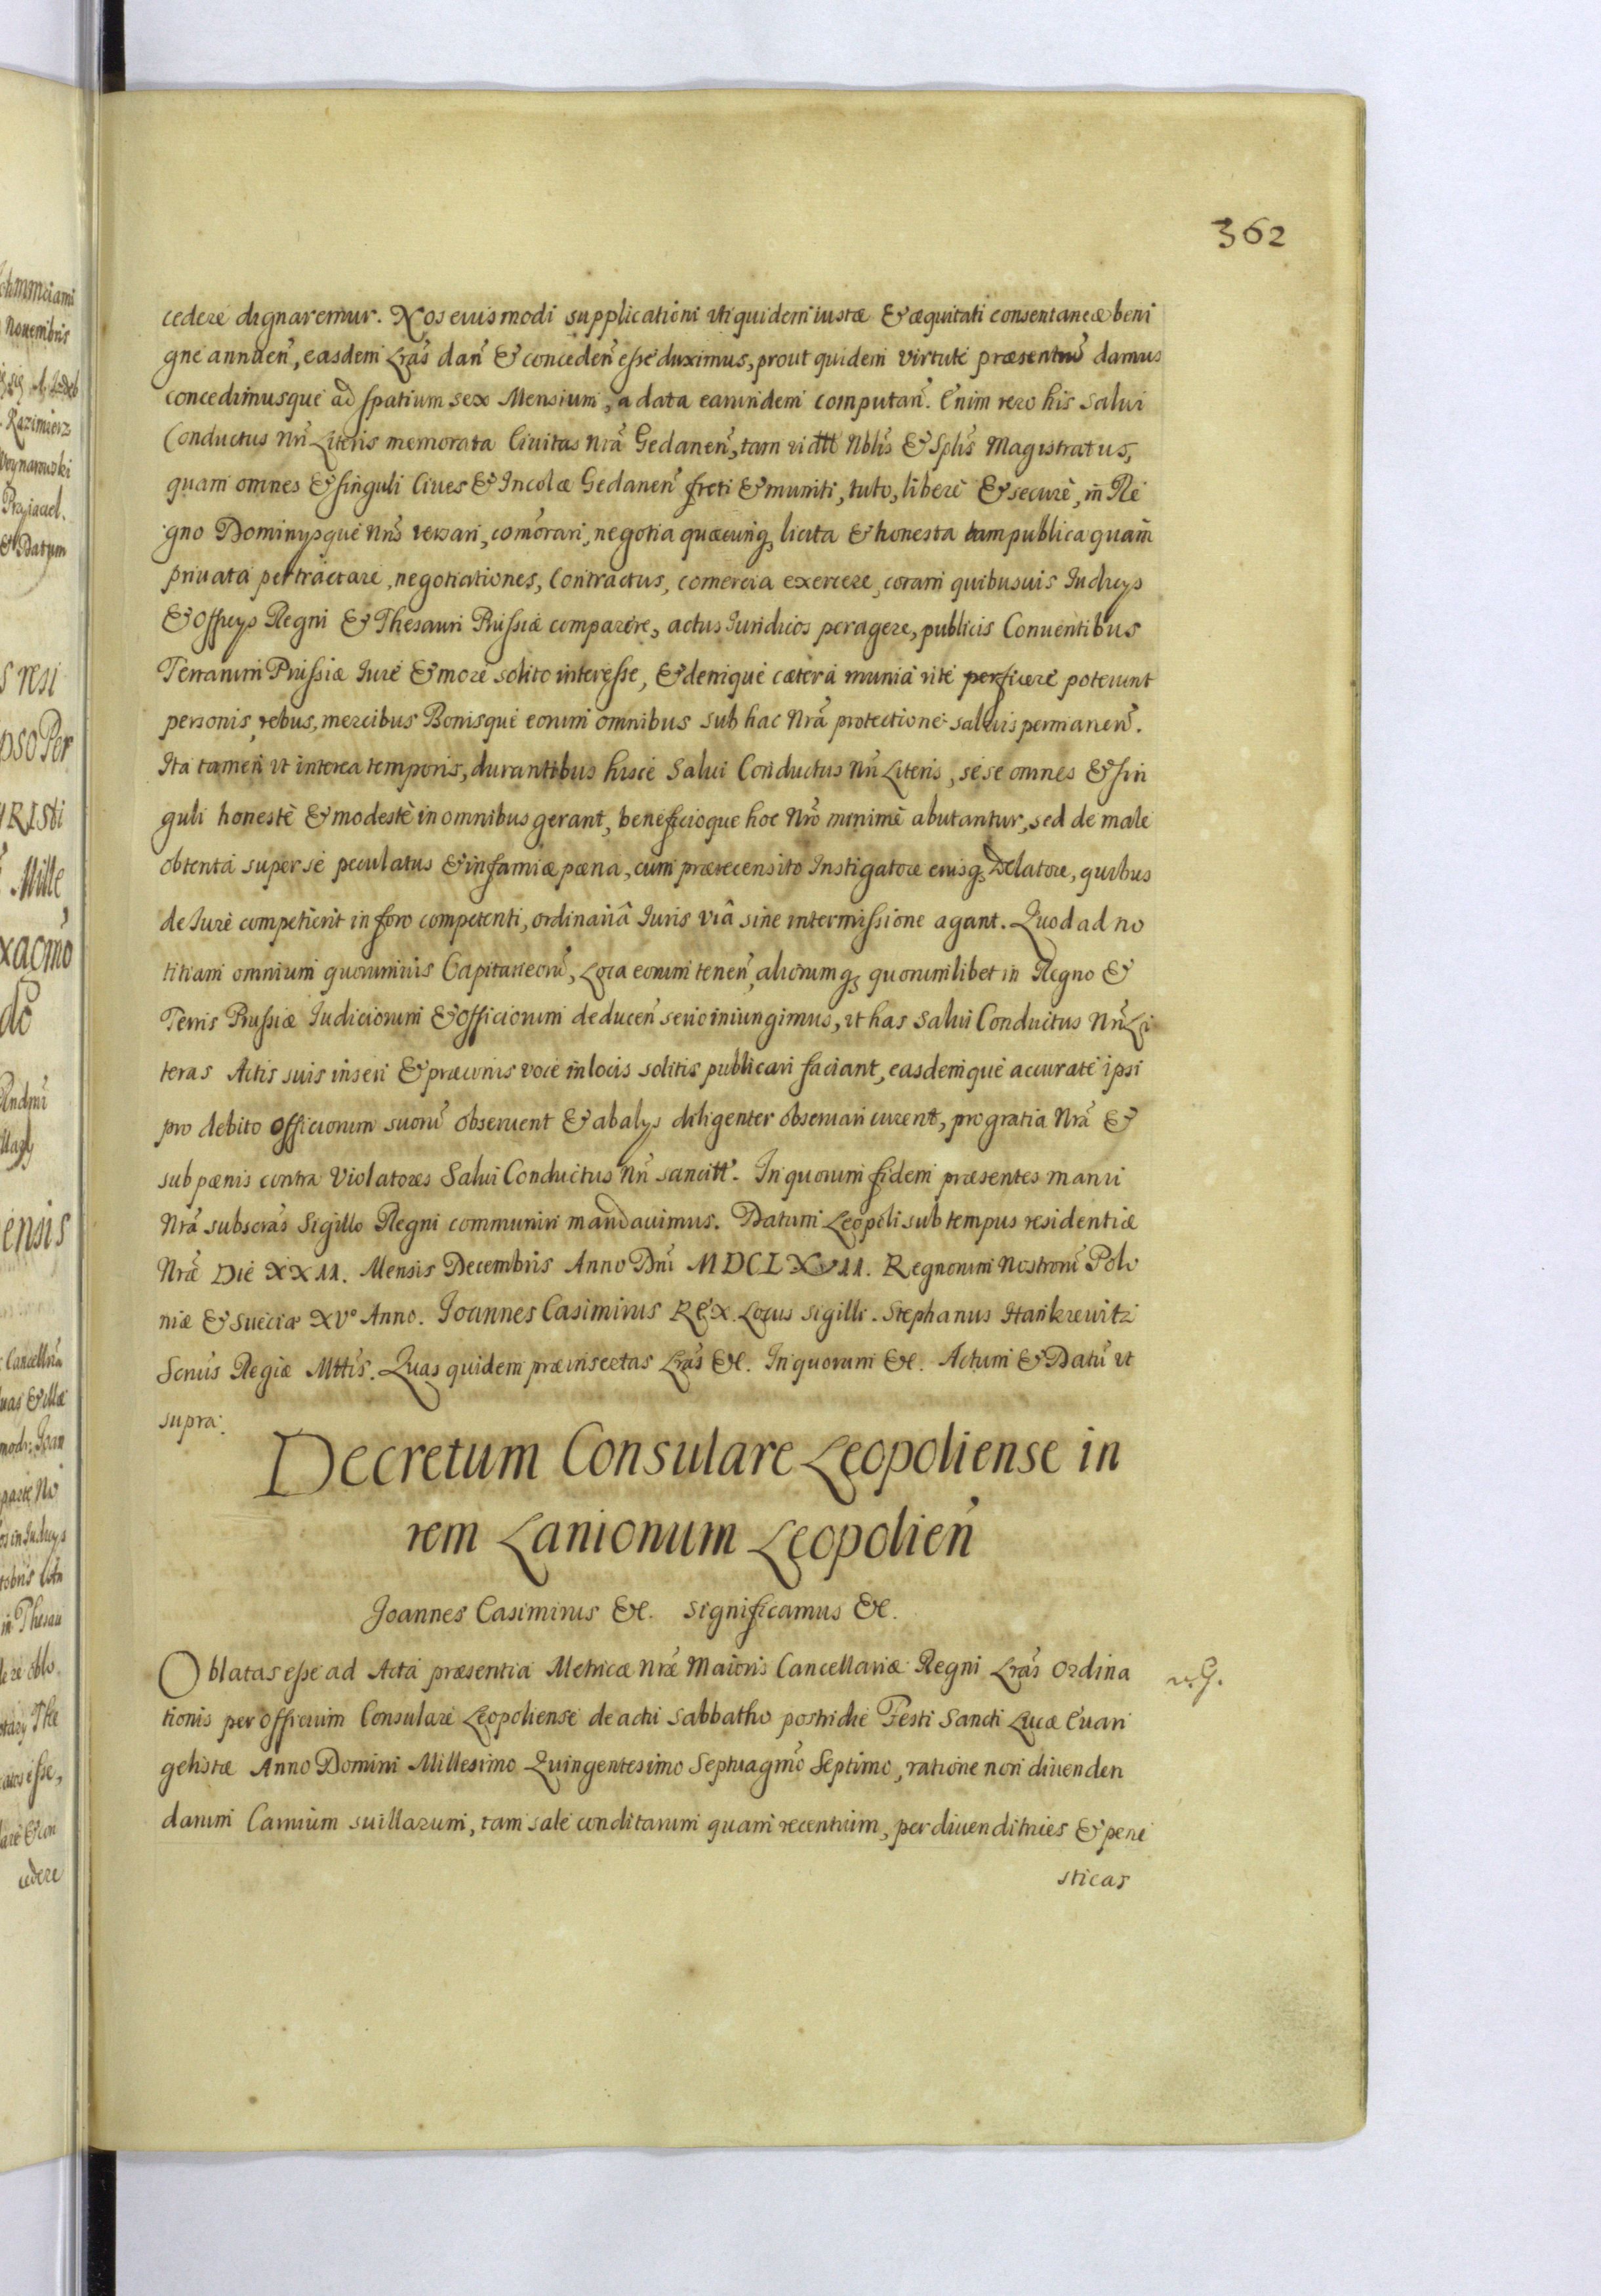 362
cedere dignaremur. Nos eius modi supplicationi uti quidem iustæ & æquitati consentaneæ beni
gne annuen̄, easdem Lrās dan̄ & conceden̄ esse duximus, prout quidem virtute præsentiū damus
concedimusque ad spatium sex Mensium, a data earundem computan̄. Enim vero his Salui
Conductus Nrī Literis memorata Ciuitas Nrā Gedanen̄, tam vidtt Nblis & Splis Magistratus,
quam omnes & singuli Ciues & Incolæ Gedanen̄ freti & muniti, tuto, liberè & securè, in Re
gno Dominysque Nrīs versari, com̄orari, negotia quæcunq, licita & honesta tam publica quam
priuata pertractare, negotiationes, Contractus, comercia exercere, coram quibusuis Iudicys
& Officys Regni & Thesauri Prussiæ comparere, actus Iuridicos peragere, publicis Conuentibus
Terrarum Prussiæ Iure & more solito interesse, & denique cætera munia rite perficere poterunt
personis, rebus, mercibus Bonisque eorum omnibus sub hac Nrā protectione saluis permanen̄.
Ita tamen ut interea temporis, durantibus hisce Salui Conductus Nrī Literis, sese omnes & sin
guli honestè & modestè in omnibus gerant, beneficioque hoc Nrō minimè abutantur, sed de male
obtenta super se peculatus & infamiæ pæna, cum prærecensito Instigatore eiusq, Delatore, quibus
de Iure competierit in foro competenti, ordinariâ Iuris viâ sine intermissione agant. Quod ad no
titiam omnium quorumuis Capitaneorū, Loca eorum tenen̄, aliorumq, quorumlibet in Regno &
Terris Prussiæ Iudiciorum & Officiorum deducen̄ serio iniungimus, ut has Salui Conductus Nrī Li
teras Actis suis inseri & præconis voce in locis solitis publicari faciant, easdemque accurate ipsi
pro debito Officiorum suorū obseruent & ab alys diligenter obseruari curent, pro gratia Nrā &
sub pænis contra Violatores Salui Conductus Nrī sancitt. In quorum fidem præsentes manu
Nrā subscrās Sigillo Regni communiri mandauimus. Datum Leopoli sub tempus residentiæ
Nræ Die XX11. Mensis Decembris Anno Dnī MDCLXV11. Regnorum Nostrorū Polo
niæ & Sueciæ XVᵒ Anno. Joannes Casimirus REX. Locus Sigilli. Stephanus Hankiewitz
Scrius Regiæ Mttis. Quas quidem præinsertas Lrās &c. In quorum &c. Actum & Datū ut
supra.
Decretum Consulare Leopoliense in
rem Lanionum Leopolien̄
Joannes Casimirus &c. Significamus &c.
Oblatas esse ad Acta præsentia Metricæ Nræ Maioris Cancellariæ Regni Lrās Ordina
tionis per Officium Consulare Leopoliense de actu Sabbatho postridie Festi Sancti Lucæ Euan
gelistæ Anno Domini Millesimo Quingentesimo Septuagmō Septimo, ratione non diuenden
darum Carnium suillarum, tam sale conditarum quam recentium, per diuenditrices & pene
sticas